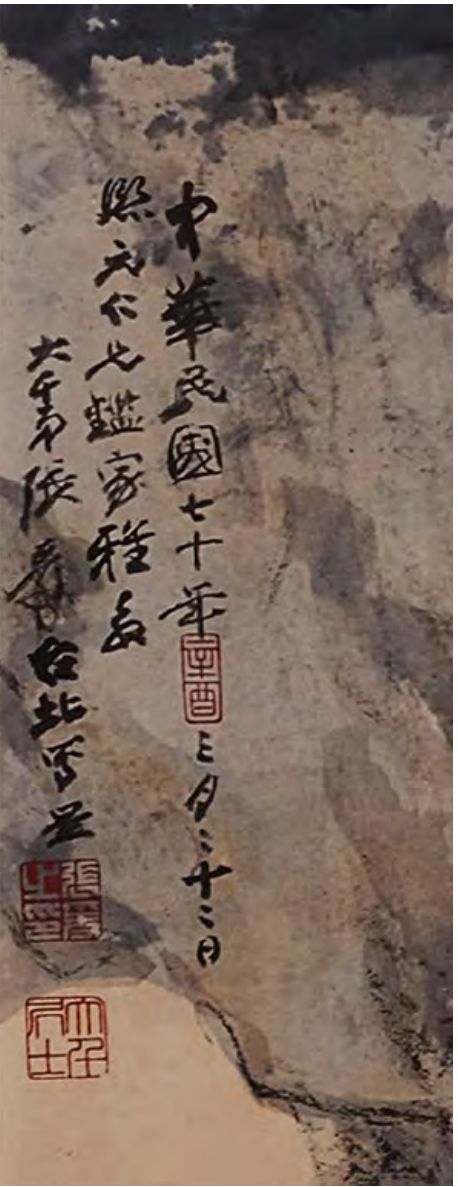 中華民國七十年辛酉三月二十二日
熙元仁兄鑑家雅教
大千弟張爰台北寫並
張爰之印
大千居士